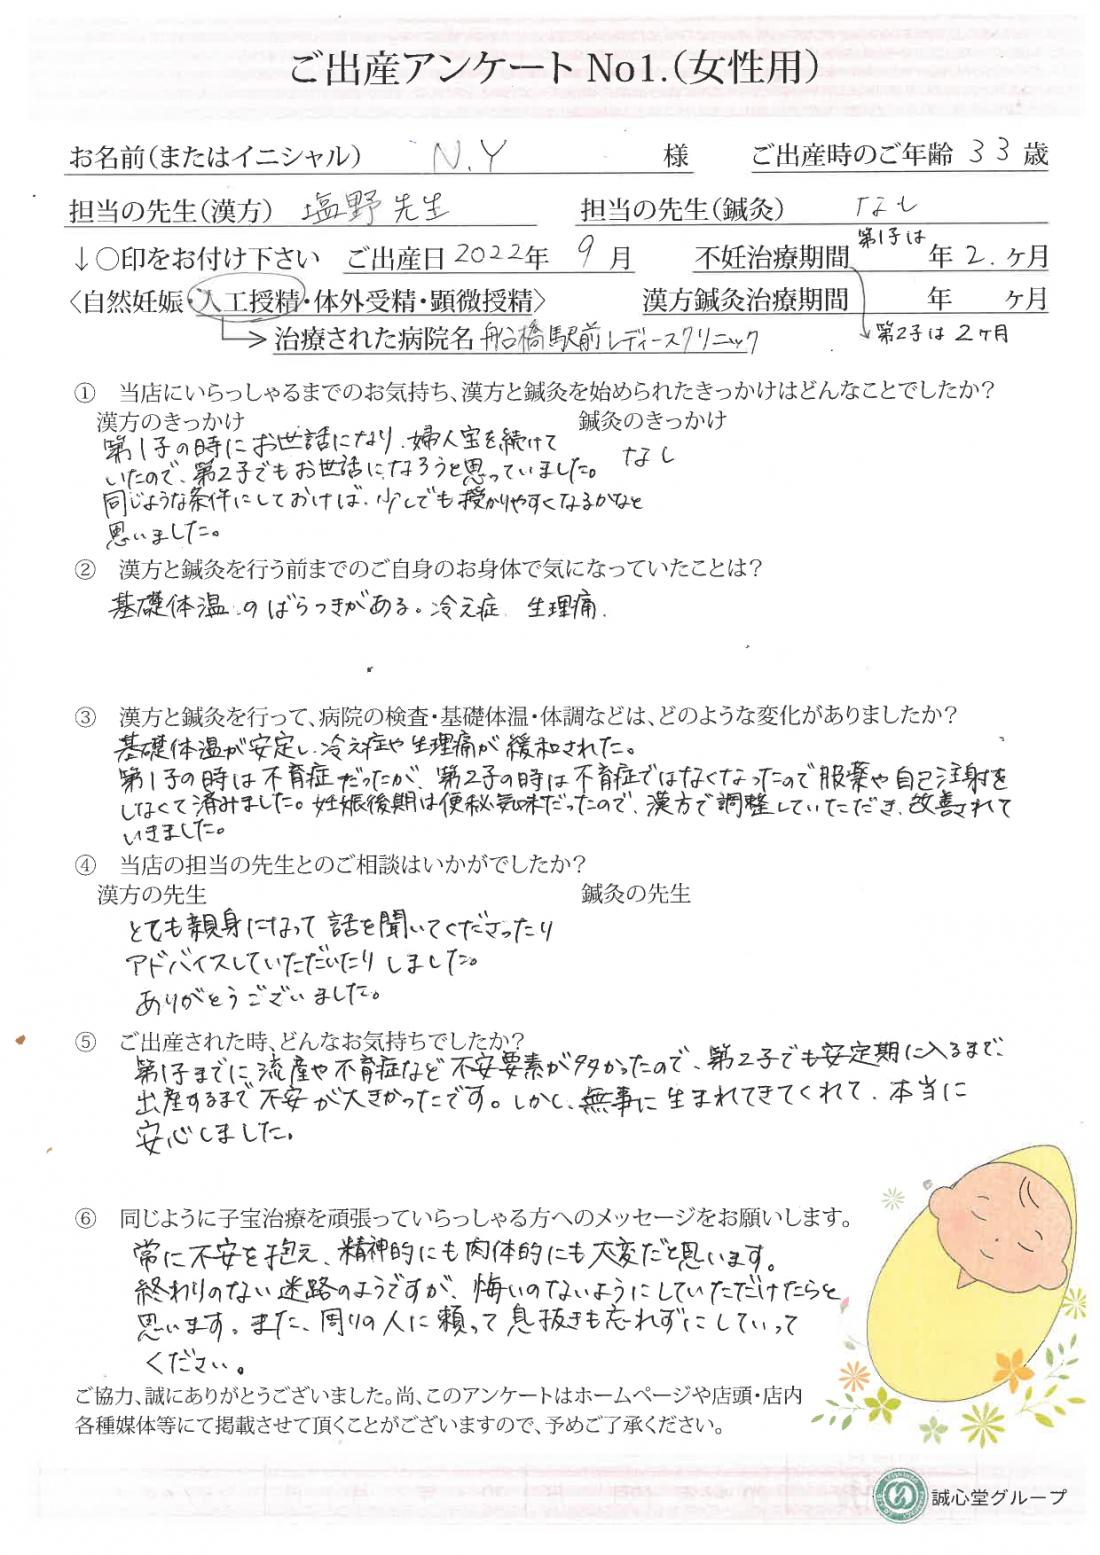 ご出産アンケート No1.(女性用)
お名前(またはイニシャル) N.Y 様 ご出産時のご年齢 33 歳
担当の先生(漢方) 塩野先生 担当の先生(鍼灸) なし
↓○印をお付け下さい ご出産日 2022年 9月 不妊治療期間 第1子は 年 2.ヶ月
〈自然妊娠・人工授精・体外受精・顕微授精〉 漢方鍼灸治療期間 年 ヶ月
→治療された病院名 船橋駅前レディースクリニック 第2子は2ヶ月
① 当店にいらっしゃるまでのお気持ち、漢方と鍼灸を始められたきっかけはどんなことでしたか?
漢方のきっかけ 鍼灸のきっかけ
第1子の時にお世話になり、婦人宝を続けて
いたので、第2子でもお世話になろうと思っていました。 なし
同じような条件にしておけば、少しでも授かりやすくなるかなと
思いました。
② 漢方と鍼灸を行う前までのご自身のお身体で気になっていたことは?
基礎体温のばらつきがある。冷え症、生理痛.
③ 漢方と鍼灸を行って、病院の検査・基礎体温・体調などは、どのような変化がありましたか?
基礎体温が安定し、冷え症や生理痛が緩和された。
第1子の時は不育症だったが、第2子の時は不育症ではなくなったので服薬や自己注射を
しなくて済みました。妊娠後期は便秘気味だったので、漢方で調整していただき、改善されて
いきました。
④ 当店の担当の先生とのご相談はいかがでしたか?
漢方の先生 鍼灸の先生
とても親身になって話を聞いてくださったり
アドバイスしていただいたりしました。
ありがとうございました。
⑤ ご出産された時、どんなお気持ちでしたか?
第1子までに流産や不育症など不安要素が多かったので、第2子でも安定期に入るまで、
出産するまで不安が大きかったです。しかし、無事に生まれてきてくれて、本当に
安心しました。
⑥ 同じように子宝治療を頑張っていらっしゃる方へのメッセージをお願いします。
常に不安を抱え、精神的にも肉体的にも大変だと思います。
終わりのない迷路のようですが、悔いのないようにしていただけたらと
思います。また、周りの人に頼って息抜きも忘れずにしていって
ください。
ご協力、誠にありがとうございました。尚、このアンケートはホームページや店頭・店内
各種媒体等にて掲載させて頂くことがございますので、予めご了承ください。
誠心堂グループ